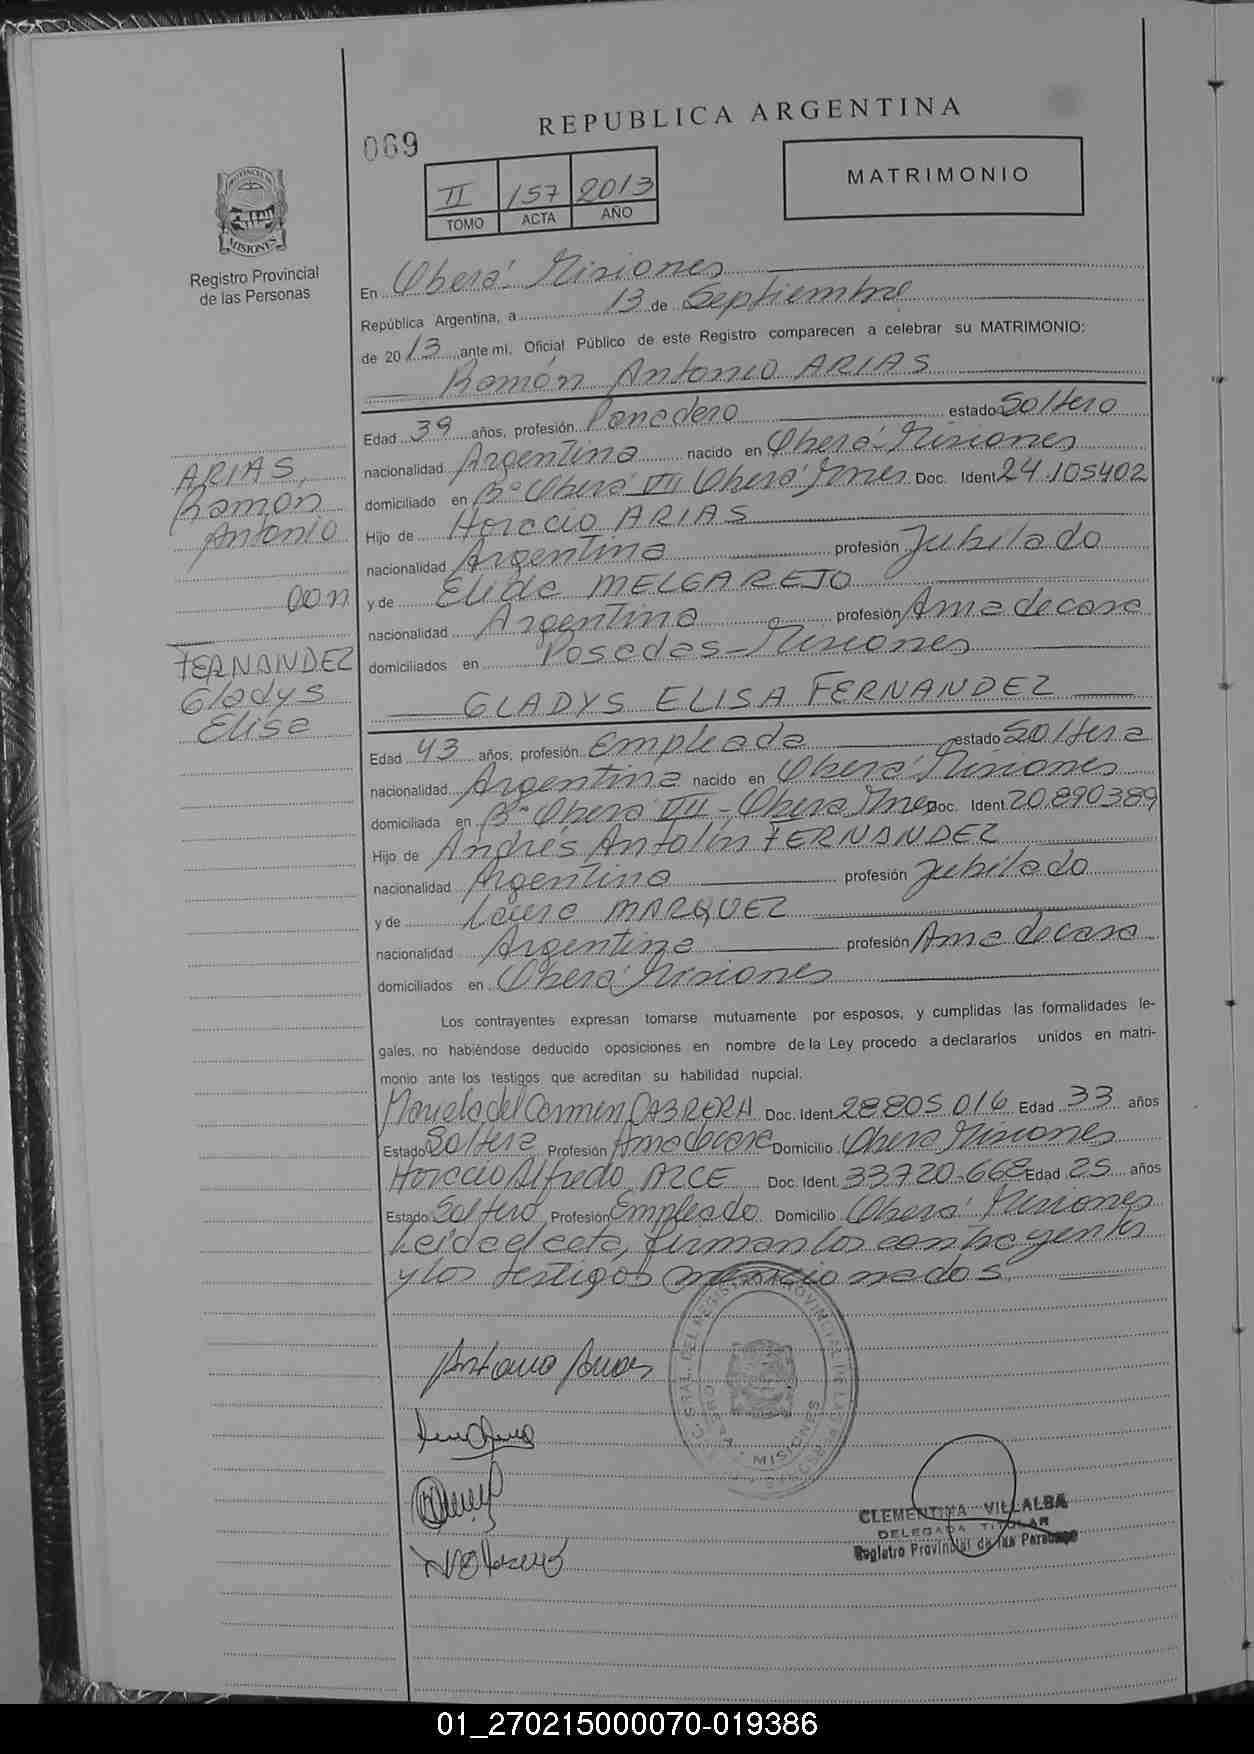 REPUBLICA ARGENTINA
069
II 157 2013
TOMO ACTA AÑO
MATRIMONIO
PROVINCIA DE MISIONES
Registro Provincial
de las Personas
ARIAS,
Ramón
Antonio
con
FERNANDEZ
Gladys
Elisa
En Oberá Misiones
República Argentina, a 13 de Septiembre
de 2013 ante mi, Oficial Público de este Registro comparecen a celebrar su MATRIMONIO:
Ramón Antonio ARIAS
Edad 39 años, profesión Panadero estado Soltero
nacionalidad Argentina nacido en Oberá-Misiones
domiciliado en Bº Oberá VII Oberá Mnes Doc. Ident 24.105402
Hijo de Horacio ARIAS
nacionalidad Argentina profesión Jubilado
y de Elida MELGAREJO
nacionalidad Argentina profesión Ama de casa
domiciliados en Posadas-Misiones
GLADYS ELISA FERNANDEZ
Edad 43 años, profesión Empleada estado Soltera
nacionalidad Argentina nacido en Oberá Misiones
domiciliada en Bº Oberá VII-Oberá Mnes Doc. Ident. 20.890389
Hijo de Andrés Antolín FERNANDEZ
nacionalidad Argentina profesión Jubilado
y de Laura MARQUEZ
nacionalidad Argentina profesión Ama de casa
domiciliados en Oberá Misiones
Los contrayentes expresan tomarse mutuamente por esposos, y cumplidas las formalidades le-
gales, no habiéndose deducido oposiciones en nombre de la Ley procedo a declararlos unidos en matri-
monio ante los testigos que acreditan su habilidad nupcial.
Mariela del Carmen CABRERA Doc. Ident. 28.805.016 Edad 33 años
Estado Soltera Profesión Ama de casa Domicilio Oberá Misiones
Horacio Alfredo ARCE Doc. Ident. 33.720.668 Edad 25 años
Estado Soltero Profesión Empleado Domicilio Oberá Misiones
Leída el acta, firman los contrayentes
y los testigos mencionados.
Antonio Arias
MISIONES
CLEMENTINA VILLALBA
DELEGADA TITULAR
Registro Provincial de las Personas
01_270215000070-019386